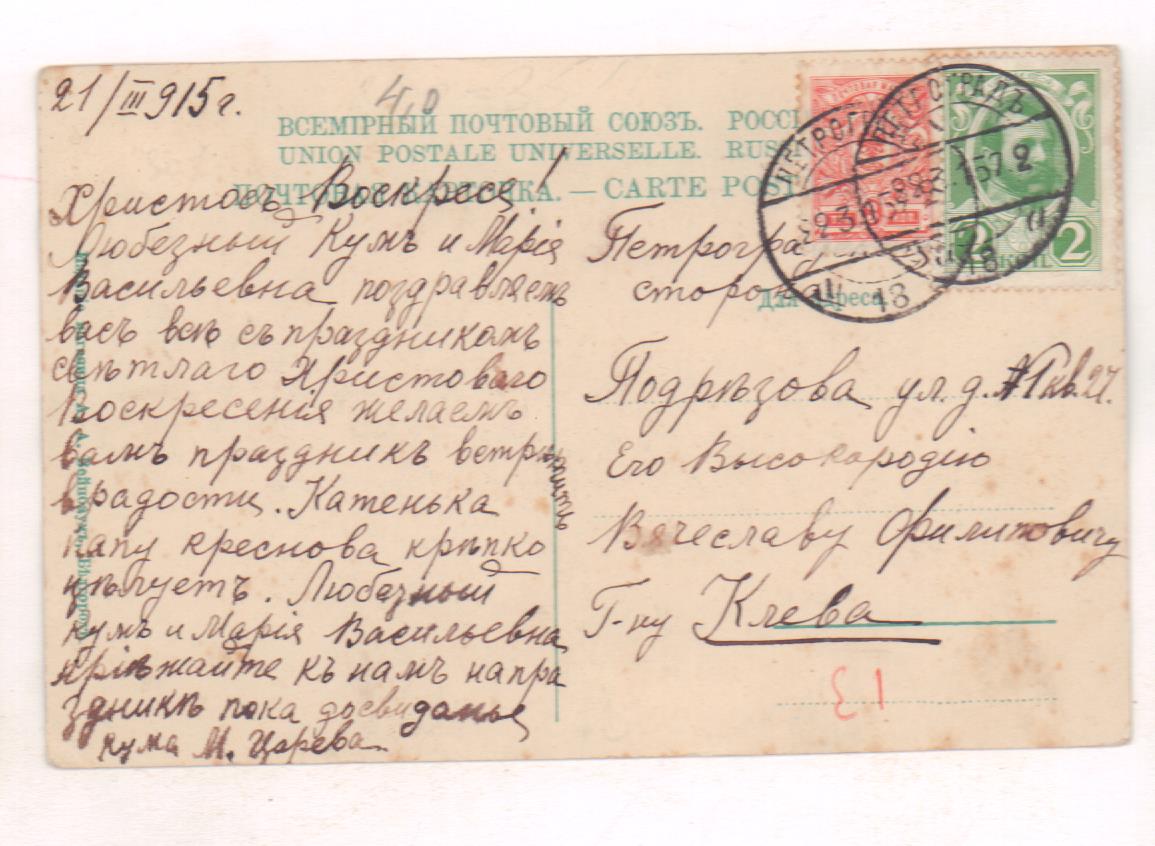 21/III 915 г.
40
ВСЕМІРНЫЙ ПОЧТОВЫЙ СОЮЗЪ. РОССІ
UNION POSTALE UNIVERSELLE. RUS
ПОЧТОВАЯ КАРТОЧКА. — CARTE POST
Христосъ Воскресе!
Любезный Кумъ и Марія
Васильевна поздравляемъ
васъ всѣ съ праздникомъ
свѣтлаго Христоваго
Воскресенія желаемъ
вамъ праздникъ встрѣтить
в радости. Катенька
папу креснова крѣпко
цѣлуетъ. Любезный
кумъ и Марія Васильевна
пріѣжайте къ намъ напра
здникѣ пока досвиданье
кума М. Царева
ПЕТРОГРАДЪ
18
ПЕТРОГРАДЪ
18
2 КОП. 2
Петроградская
сторона
Для адреса
Подрѣзова ул. д. № 1 кв. 27.
Его Высокородію
Вячеславу Филиповичу
Г-ну Клева